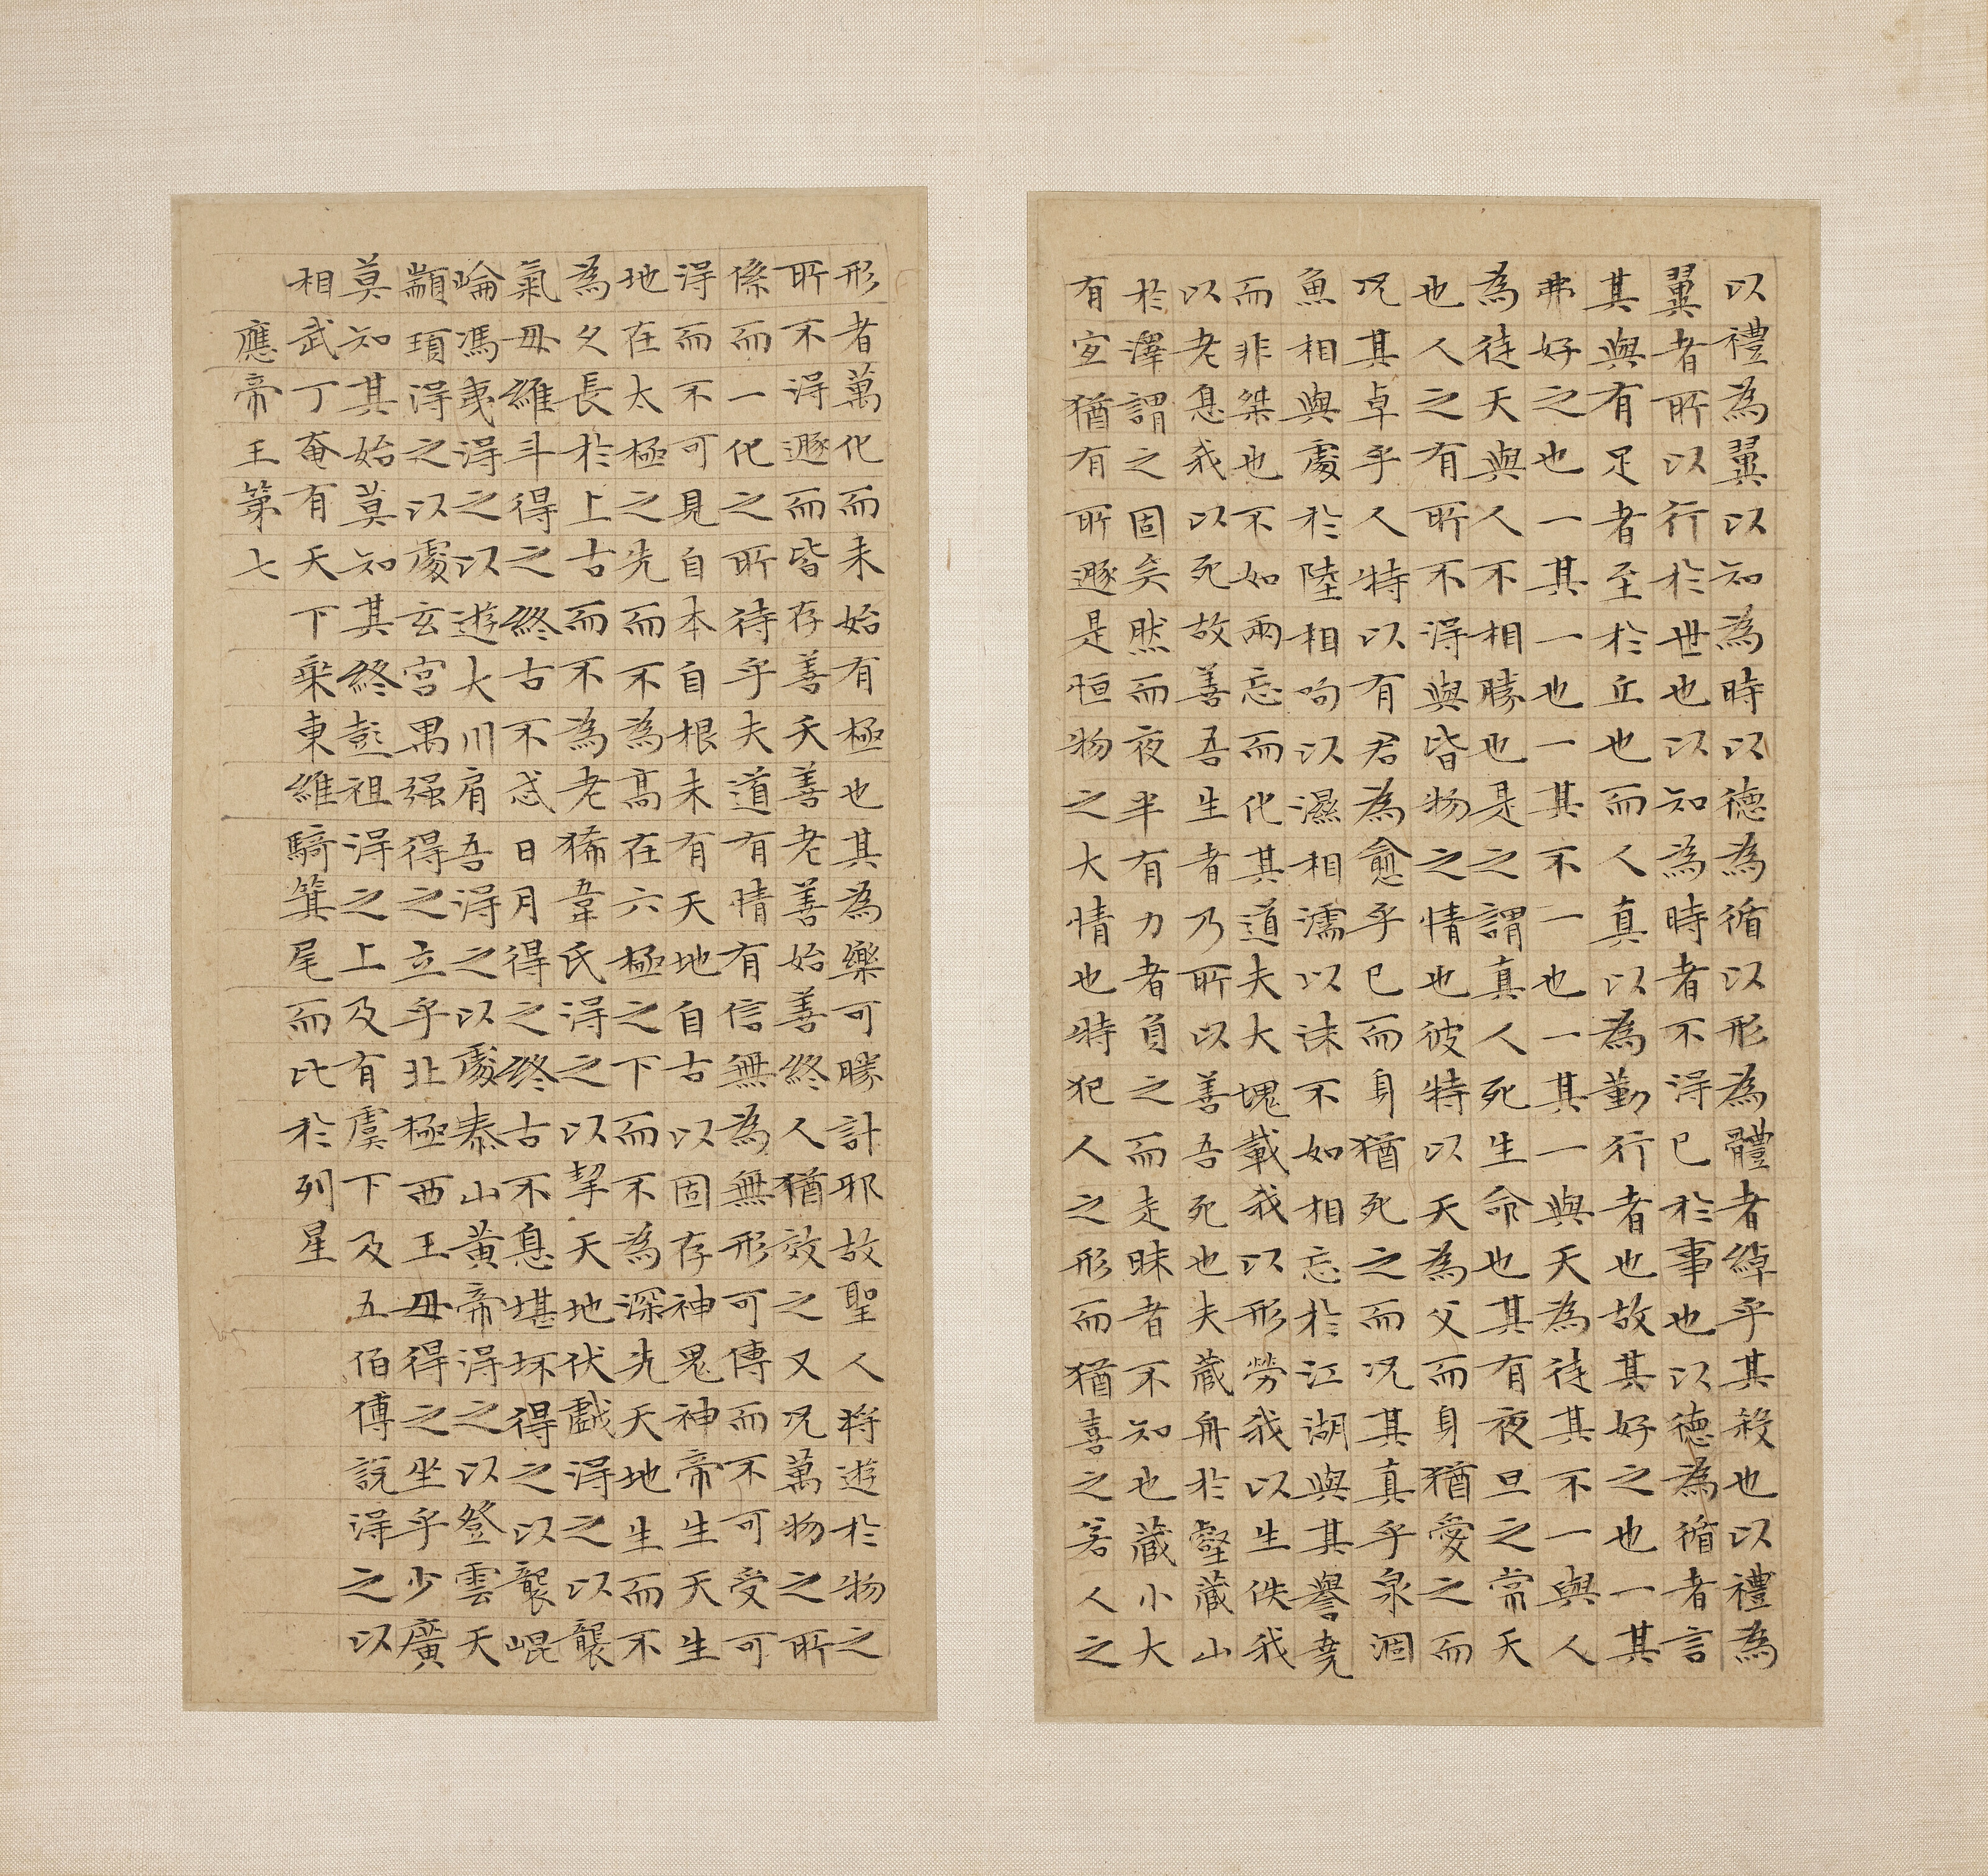 以禮為翼以知為時以德為循以形為體者綽乎其殺也以禮為
翼者所以行於世也以知為時者不得已於事也以德為循者言
其與有足者至於丘也而人真以為勤行者也故其好之也一其
弗好之也一其一也一其不一也一其一與天為徒其不一與人
為徒天與人不相勝也是之謂真人死生命也其有夜旦之常天
也人之有所不得與皆物之情也彼特以天為父而身猶愛之而
况其卓乎人特以有君為愈乎已而身猶死之而况其真乎泉涸
魚相與處於陸相呴以濕相濡以沫不如相忘於江湖與其譽堯
而非桀也不如兩忘而化其道夫大塊載我以形勞我以生佚我
以老息我以死故善吾生者乃所以善吾死也夫藏舟於壑藏山
於澤謂之固矣然而夜半有力者負之而走昧者不知也藏小大
有宜猶有所遯是恒物之大情也特犯人之形而猶喜之若人之
形者萬化而未始有極也其為樂可勝計邪故聖人將遊於物之
所不得遯而皆存善夭善老善始善終人猶效之又况萬物之所
係而一化之所待乎夫道有情有信無為無形可傳而不可受可
得而不可見自本自根未有天地自古以固存神鬼神帝生天生
地在太極之先而不為高在六極之下而不為深先天地生而不
為久長於上古而不為老狶韋氏得之以挈天地伏戲得之以襲
氣母維斗得之終古不忒日月得之終古不息堪坏得之以襲崐
崘馮夷得之以遊大川肩吾得之以處泰山黃帝得之以登雲天
顓頊得之以處玄宮禺强得之立乎北極西王母得之坐乎少廣
莫知其始莫知其終彭祖得之上及有虞下及五伯傅說得之以
相武丁奄有天下乘東維騎箕尾而比於列星
應帝王第七